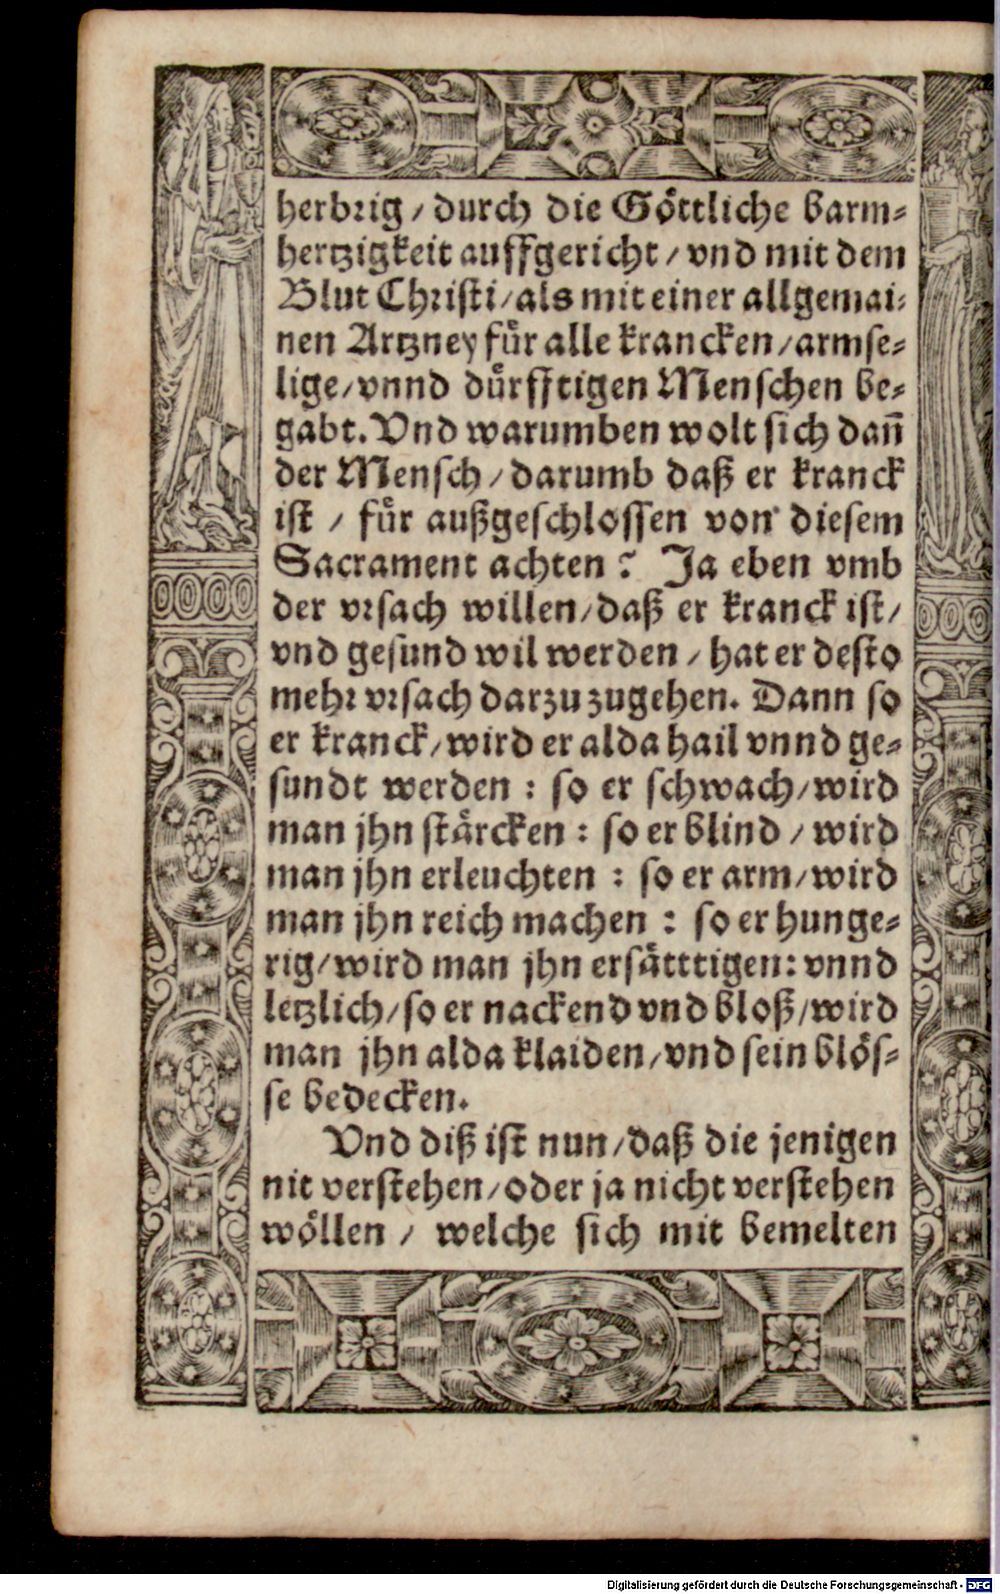 herbrig / durch die Göttliche barm-
hertzigkeit auffgericht / vnd mit dem
Blut Christi / als mit einer allgemai-
nen Artzney für alle krancken / armse-
lige / vnnd dürfftigen Menschen be-
gabt. Vnd warumben wolt sich dañ
der Mensch / darumb daß er kranck
ist / für außgeschlossen von diesem
Sacrament achten? Ja eben vmb
der vrsach willen / daß er kranck ist /
vnd gesund wil werden / hat er desto
mehr vrsach darzu zugehen. Dann so
er kranck / wird er alda hail vnnd ge-
sundt werden : so er schwach / wird
man jhn stärcken : so er blind / wird
man jhn erleuchten : so er arm / wird
man jhn reich machen : so er hunge-
rig / wird man jhn ersätttigen: vnnd
letzlich / so er nackend vnd bloß / wird
man jhn alda klaiden / vnd sein blös-
se bedecken.
Vnd diß ist nun / daß die jenigen
nit verstehen / oder ja nicht verstehen
wöllen / welche sich mit bemelten
Digitalisierung gefördert durch die Deutsche Forschungsgemeinschaft - DFG